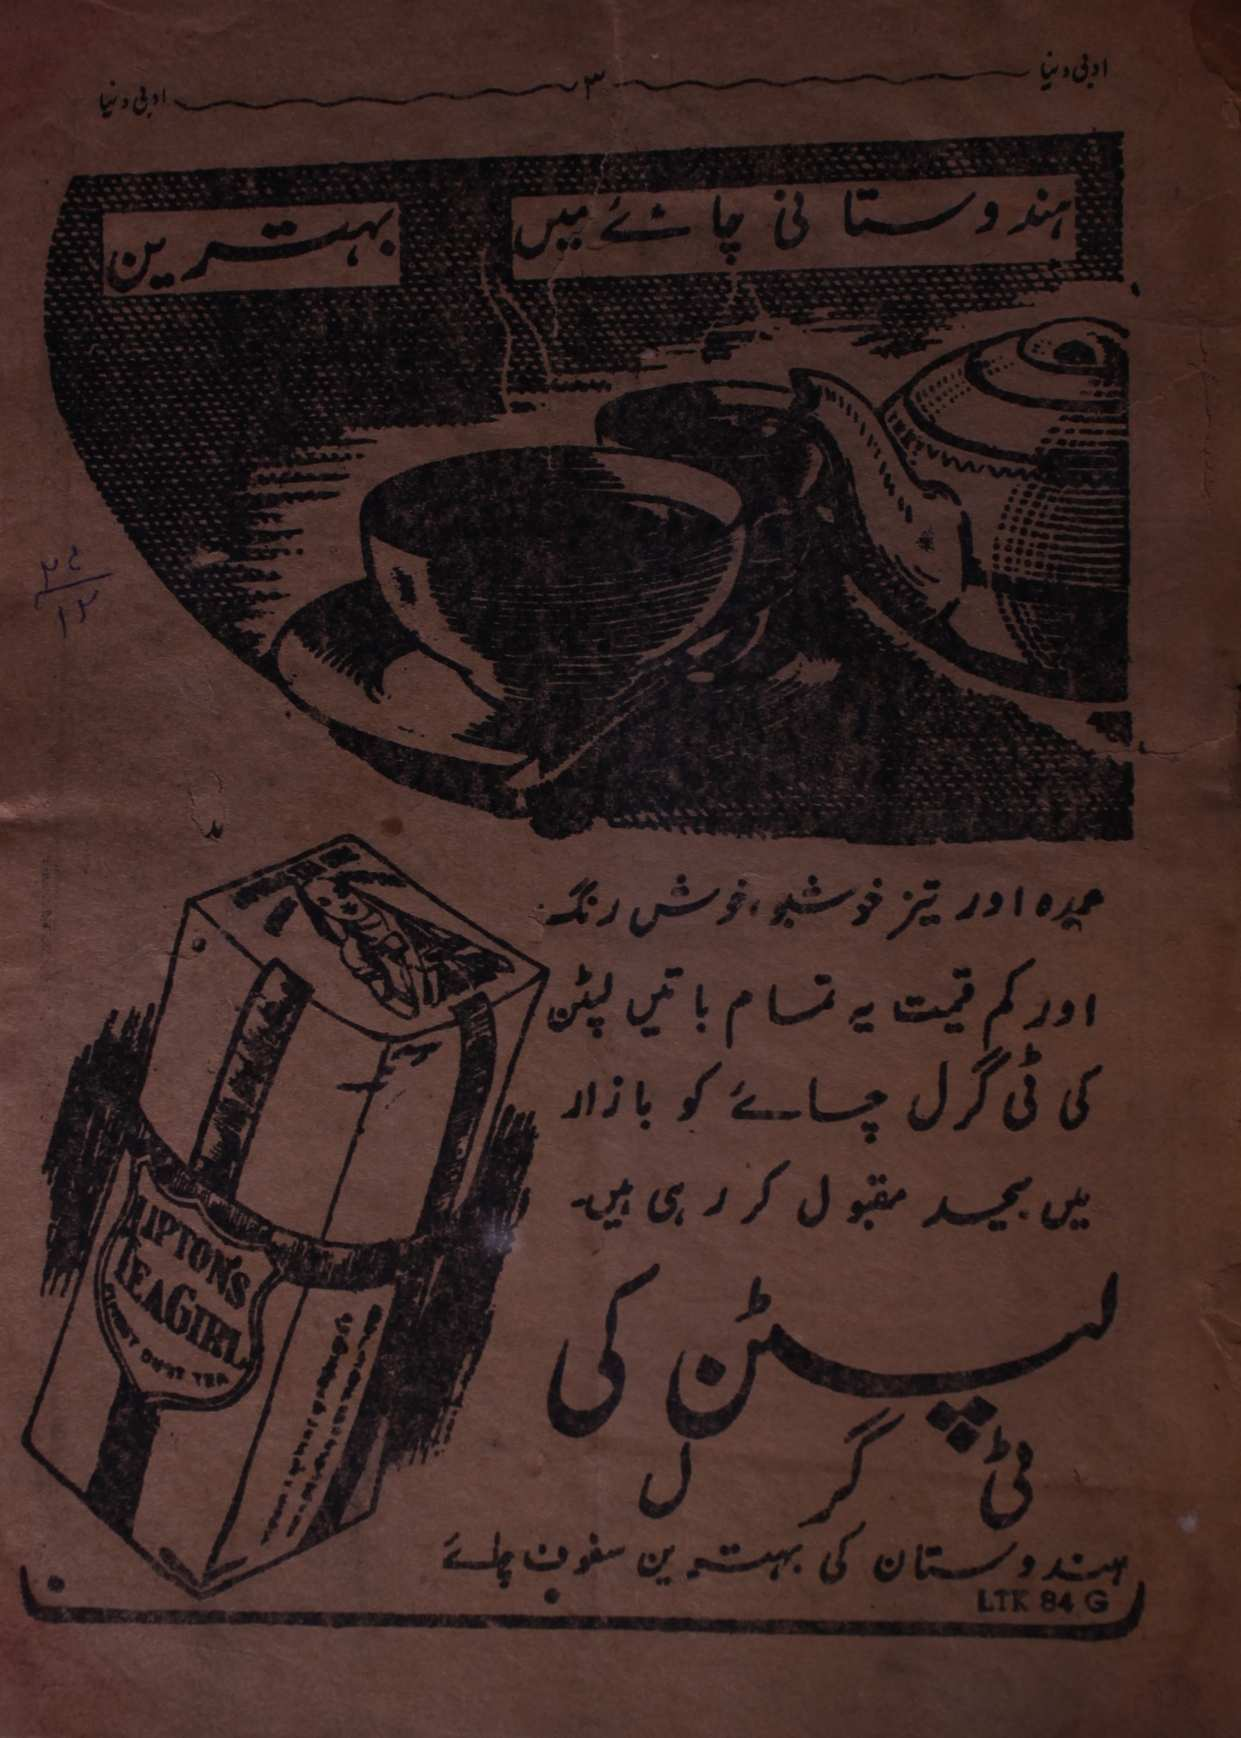 ادبی دنیا ۳ ادبی دنیا
ہندوستانی چائے میں بہترین
۲۶
۱۲
عمدہ اور تیز خوشبو، خوش رنگ
اور کم قیمت یہ تمام باتیں لپٹن
کی ٹی گرل چائے کو بازار
میں بیحد مقبول کر رہی ہیں۔
لپٹن کی
ٹی گرل
ہندوستان کی بہترین سفوف چائے
LTK 84 G
LIPTON'S
TEAGIRL
DUST TEA